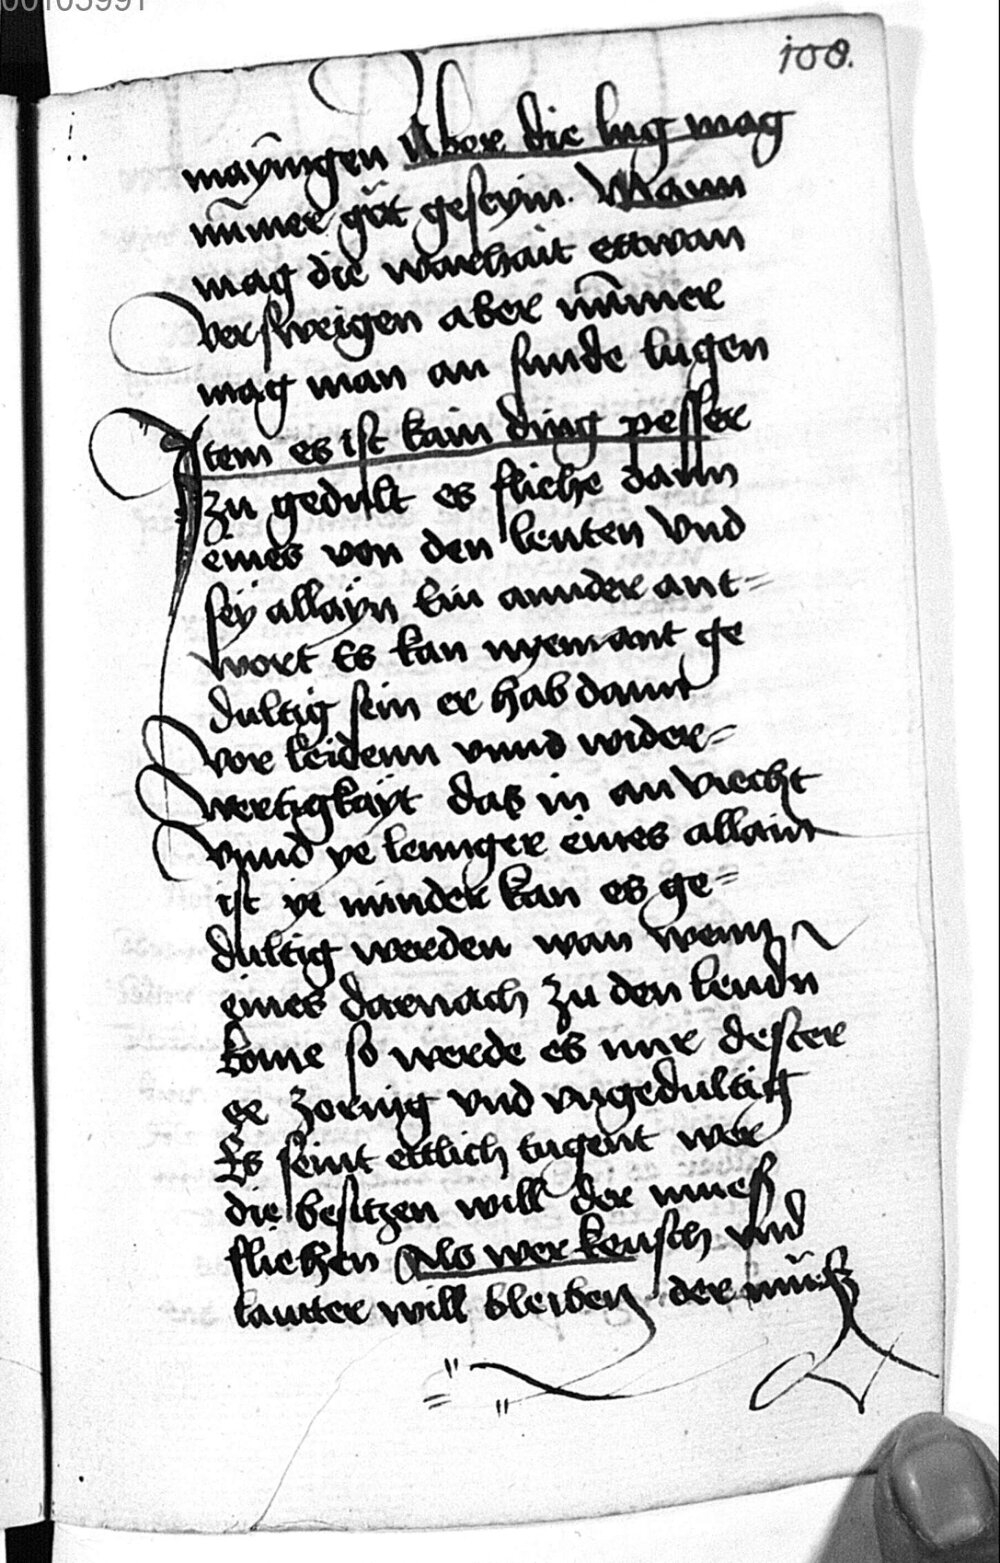 00103991
108.
mayn̄gen Aber die lug mag
nūmer gůt geseyin. Wann
mag die warhait ettwan
versweigen aber nūmer
mag man an sunde lugen
Item es ist kain ding pesser
zu gedult es fliehe dann
eines von den leuten Vnd
sey allayn Ein annder ant=
wort Es kan nyemant ge
dultig sein er hab dann
vor leidenn vnnd wider=
wertigkayt das in anviecht
Vnnd ye lennger eines allain
ist ye minder kan es ge=
dultig werden wan wenn
eines darnach zu den leudn
kome so werde es nur dester
ee zornig vnd vngedultig
Es seint ettlich tugent wer
die besitzen will der mueß
fliehen Als wer keusch vnd
lautter will bleiben der můeß